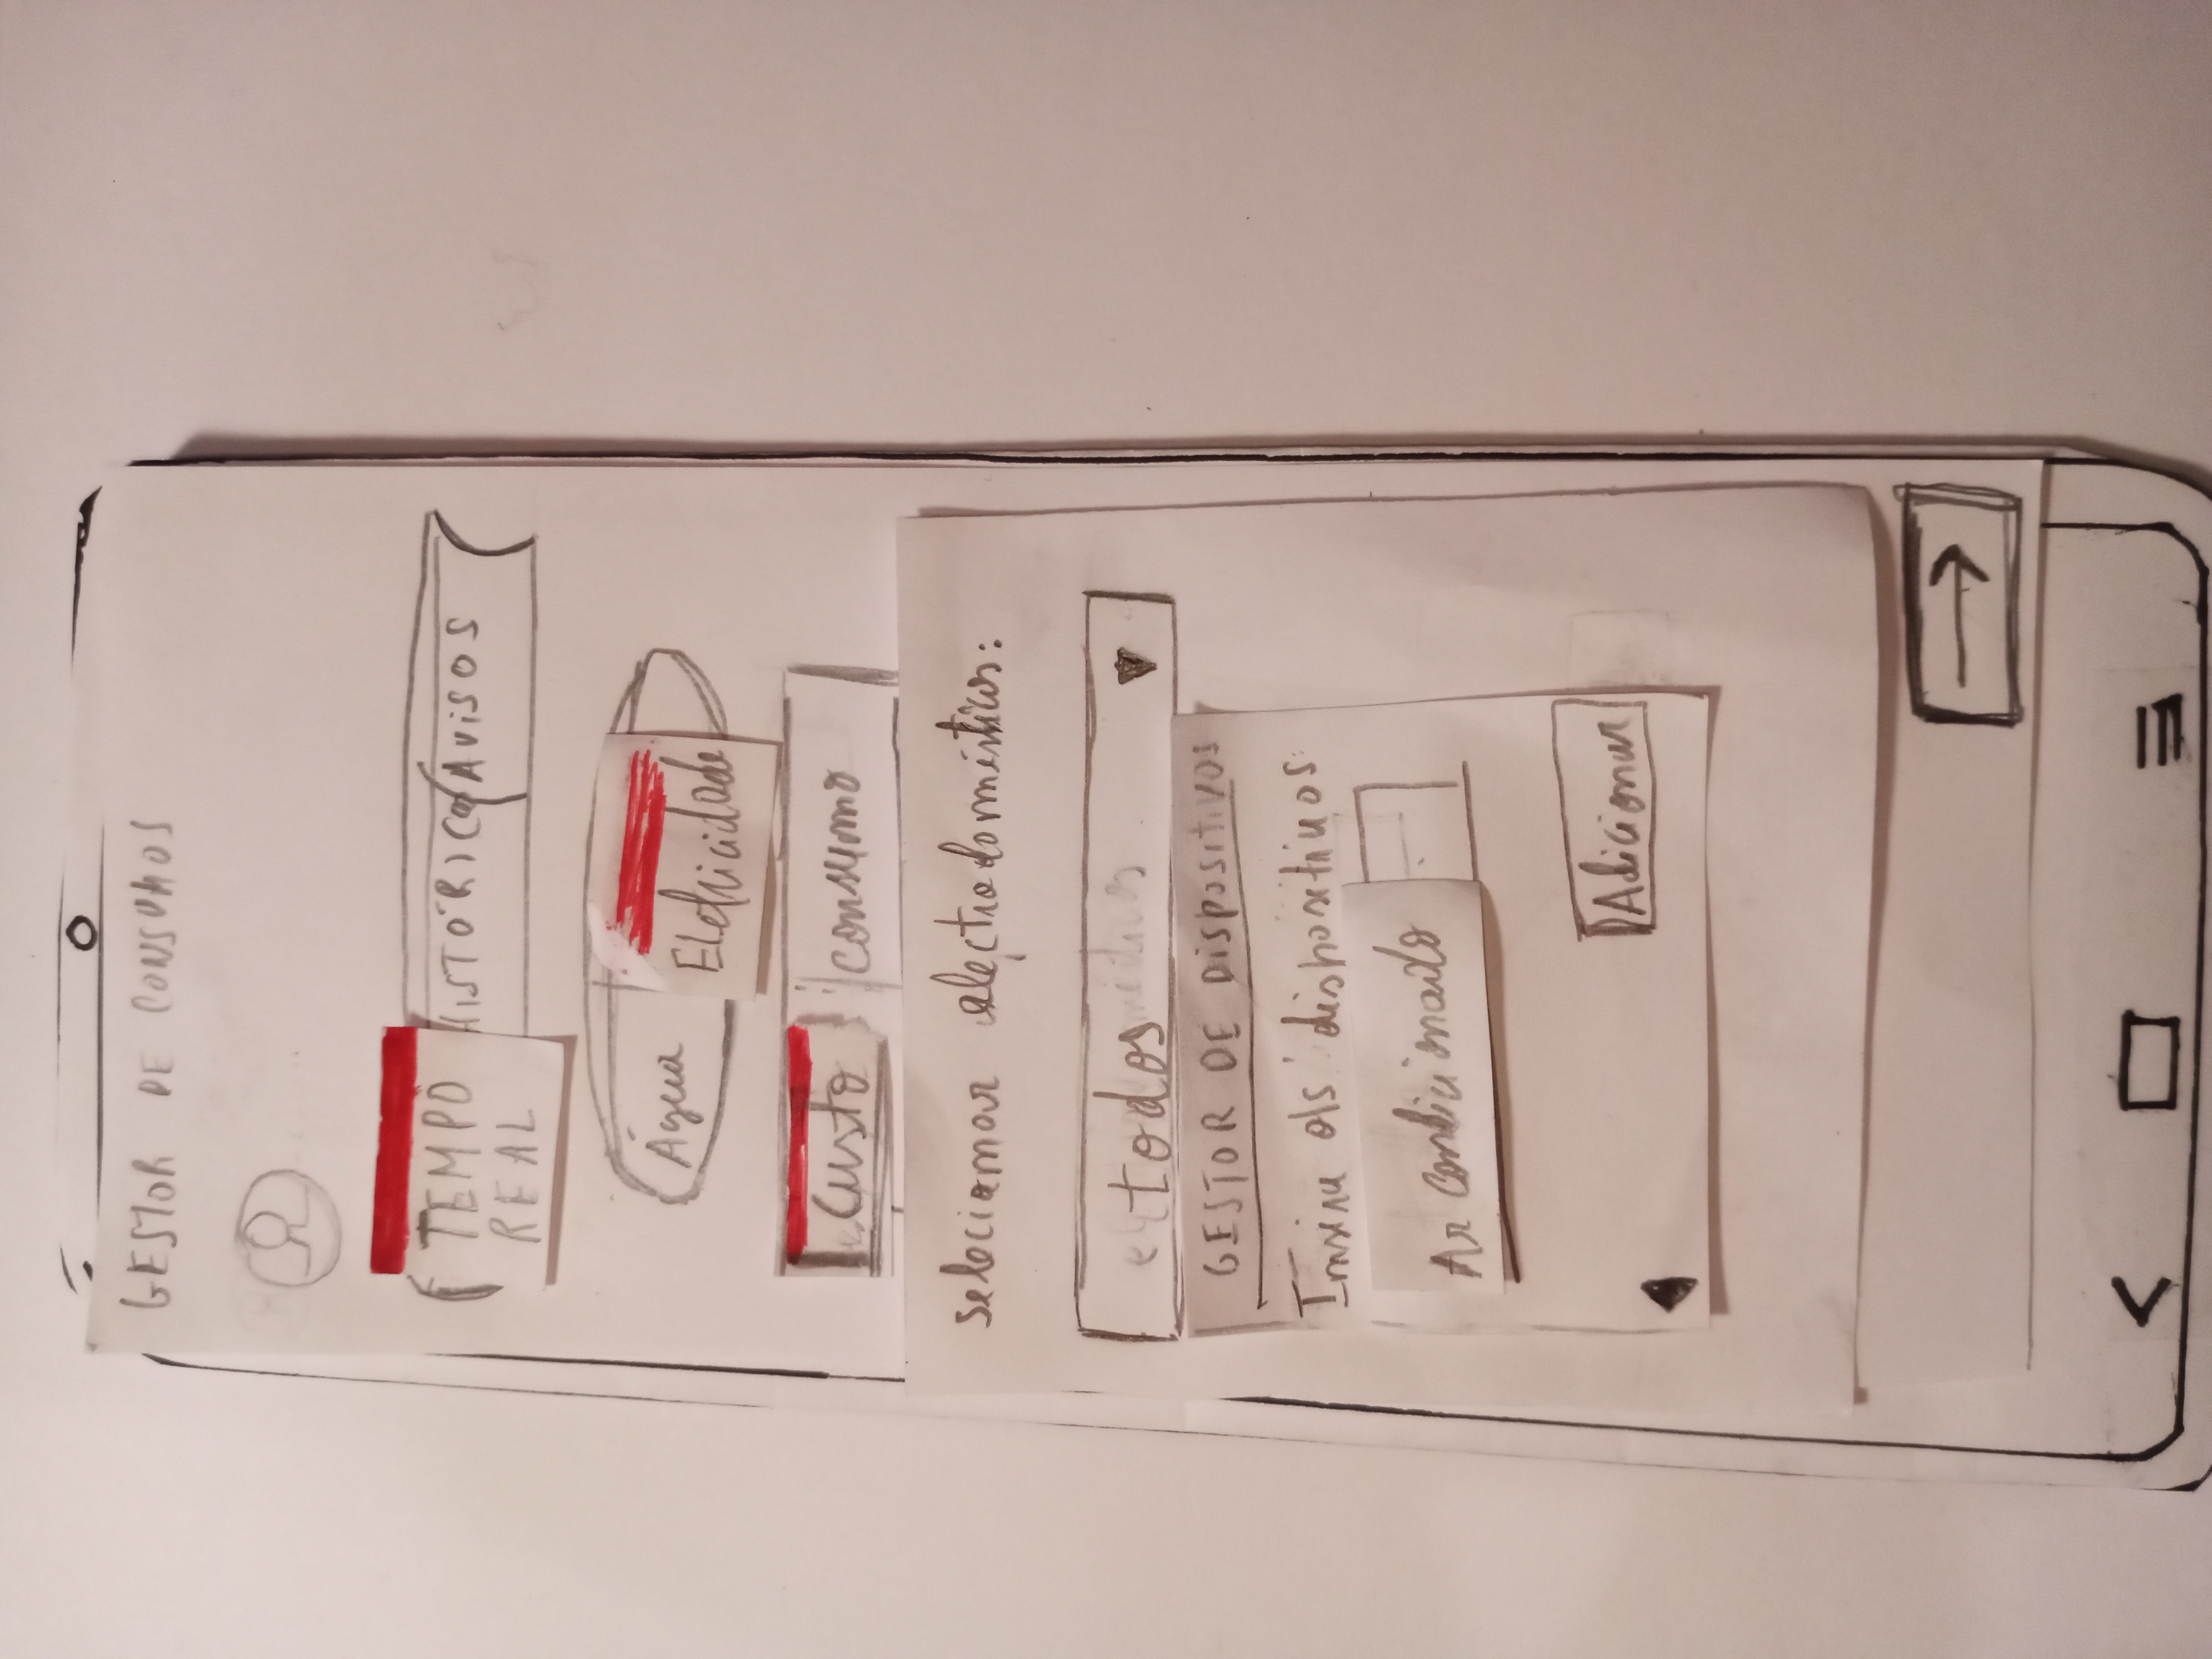 GESTOR DE CONSUMOS
TEMPO
REAL
HISTÓRICO
AVISOS
Água
Eletricidade
Custo
consumo
selecionar electrodomésticos:
todos
GESTOR DE DISPOSITIVOS
dispositivos:
Ar condicionado
Adicionar